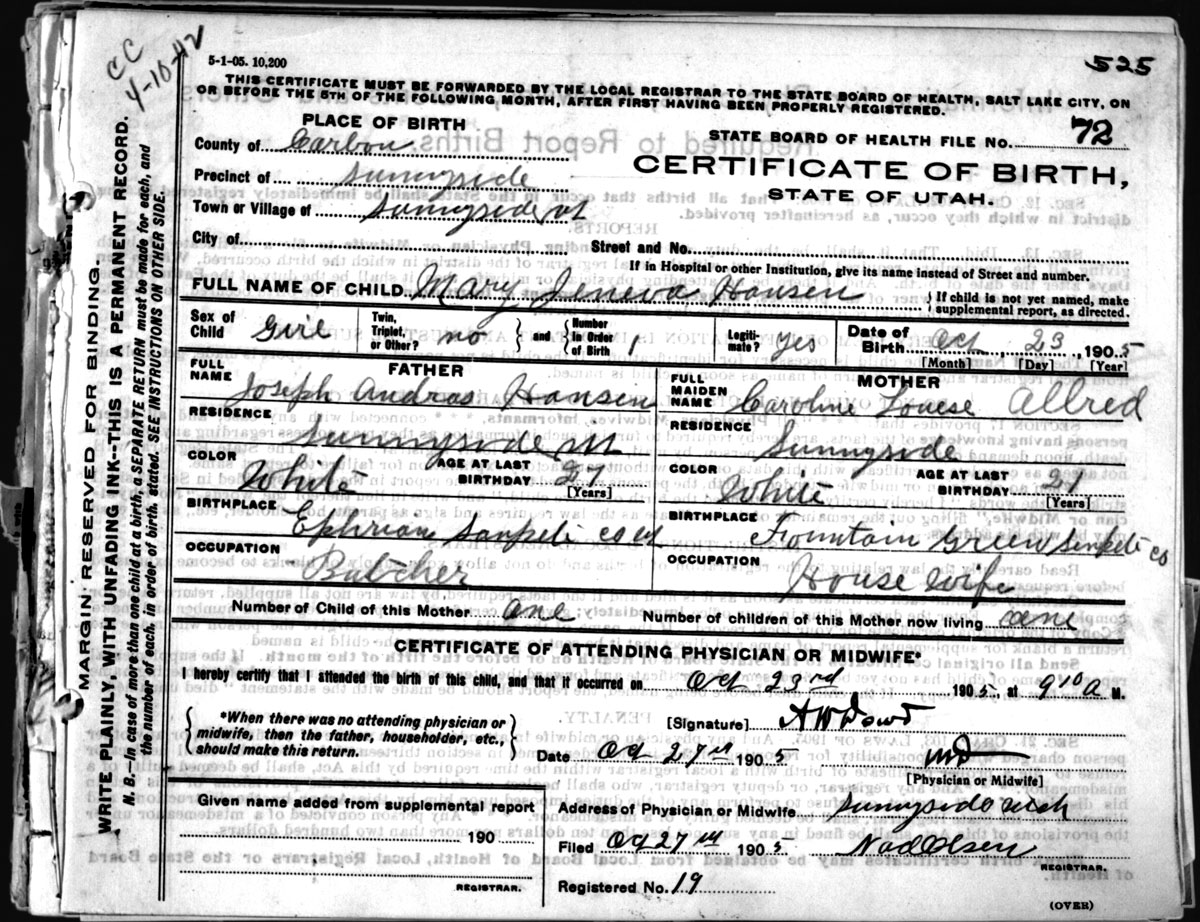 CC
4-10-42
5-1-05. 10,200
525
THIS CERTIFICATE MUST BE FORWARDED BY THE LOCAL REGISTRAR TO THE STATE BOARD OF HEALTH, SALT LAKE CITY, ON
OR BEFORE THE 5TH OF THE FOLLOWING MONTH, AFTER FIRST HAVING BEEN PROPERLY REGISTERED.
PLACE OF BIRTH
STATE BOARD OF HEALTH FILE No. 72
County of Carbon
CERTIFICATE OF BIRTH,
Precinct of Sunnyside
STATE OF UTAH.
Town or Village of Sunnyside ut
City of
Street and No.
If in Hospital or other Institution, give its name instead of Street and number.
FULL NAME OF CHILD Mary Jeneva Hansen } If child is not yet named, make
supplemental report, as directed.
Sex of Child Girl Twin, Triplet, or Other? no } and { Number in Order of Birth 1 Legiti-mate? yes Date of Birth Oct 23, 1905
[Month] [Day] [Year]
FATHER
FULL NAME Joseph Andras Hansen
RESIDENCE
Sunnyside ut
COLOR White AGE AT LAST BIRTHDAY 27
[Years]
BIRTHPLACE
Ephriam Sanpete co ut
OCCUPATION
Butcher
MOTHER
FULL MAIDEN NAME Caroline Louese Allred
RESIDENCE
Sunnyside
COLOR White AGE AT LAST BIRTHDAY
[Years]
BIRTHPLACE
Fountain Green Senpete co
OCCUPATION
House wife
Number of Child of this Mother one Number of children of this Mother now living one
CERTIFICATE OF ATTENDING PHYSICIAN OR MIDWIFE*
I hereby certify that I attended the birth of this child, and that it occurred on Oct 23rd 1905, at 9 10 A M.
{ *When there was no attending physician or
midwife, then the father, householder, etc.,
should make this return. }
[Signature] A W Dowd
Date Oct 27th 1905 MD
[Physician or Midwife]
Given name added from supplemental report
190
REGISTRAR.
Address of Physician or Midwife Sunnyside Utah
Filed Oct 27th 1905 Nad Olsen
REGISTRAR.
Registered No. 19
(OVER)
MARGIN RESERVED FOR BINDING.
WRITE PLAINLY, WITH UNFADING INK--THIS IS A PERMANENT RECORD.
N. B.—In case of more than one child at a birth, a SEPARATE RETURN must be made for each, and
the number of each, in order of birth, stated. SEE INSTRUCTIONS ON OTHER SIDE.